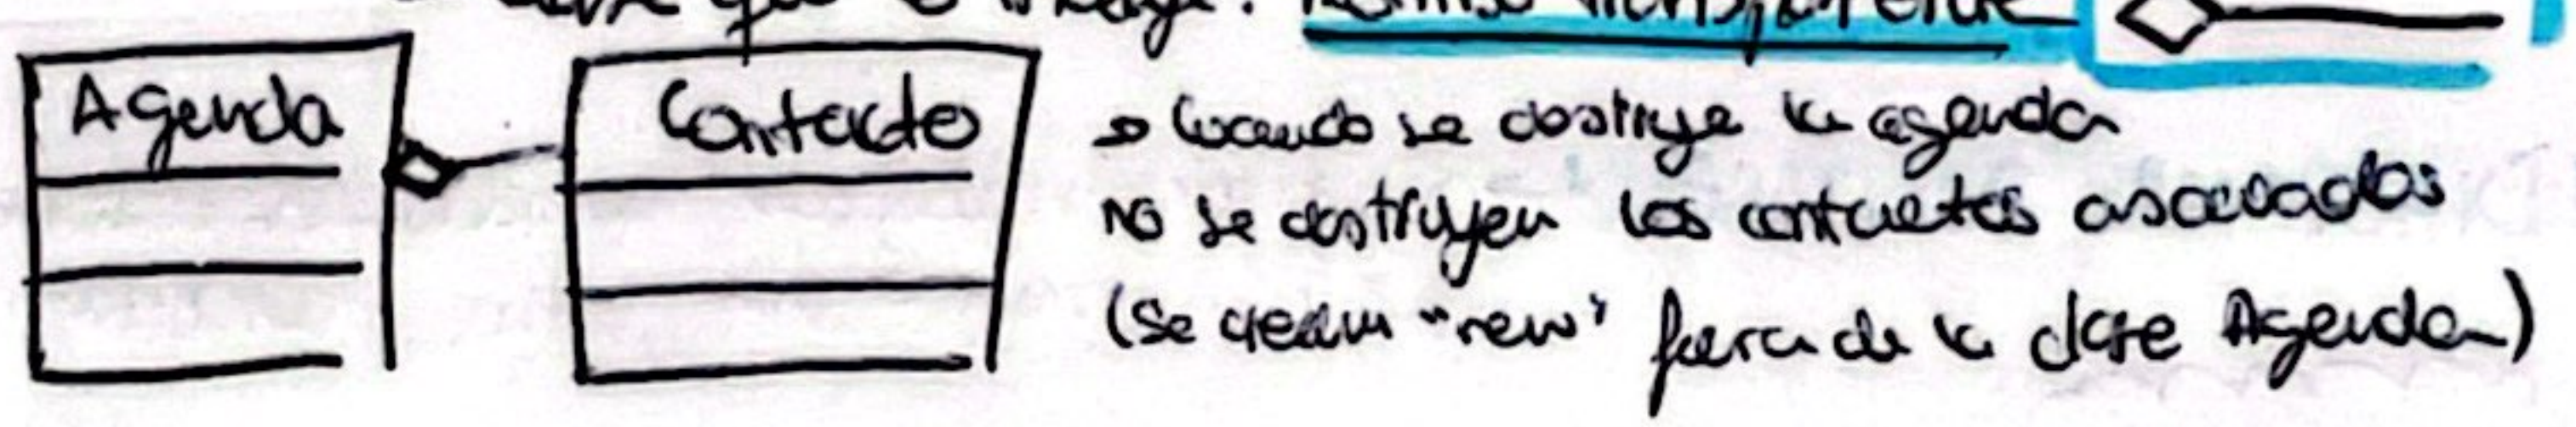 que
Agenda
Contacto
→ Cuando se destruye la agenda
NO se destruyen los contactos asociados
(se crean "new" fuera de la clase Agenda)